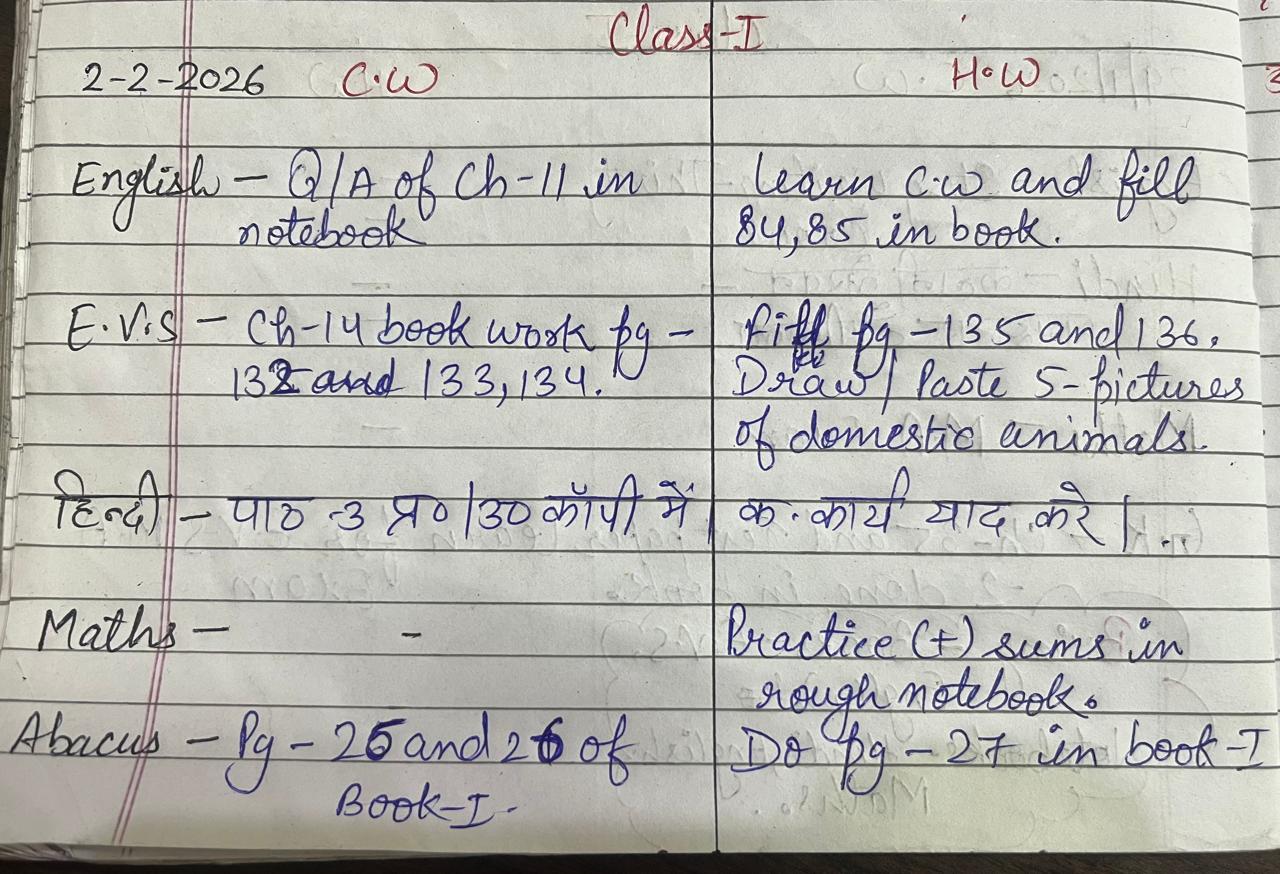 Class-I
2-2-2026 C.W H.W
English - Q/A of Ch-11 in
notebook
Learn C.W and fill
84,85 in book.
E.V.S - Ch-14 book work pg -
132 and 133, 134.
Fill pg - 135 and 136.
Draw / Paste 5-pictures
of domestic animals.
हिन्दी - पाठ -3 प्र०/उ० कॉपी में
क. कार्य याद करे।
Maths - -
Practice (+) sums in
rough notebook.
Abacus - Pg - 25 and 26 of
Book-I.
Do pg - 27 in book-I